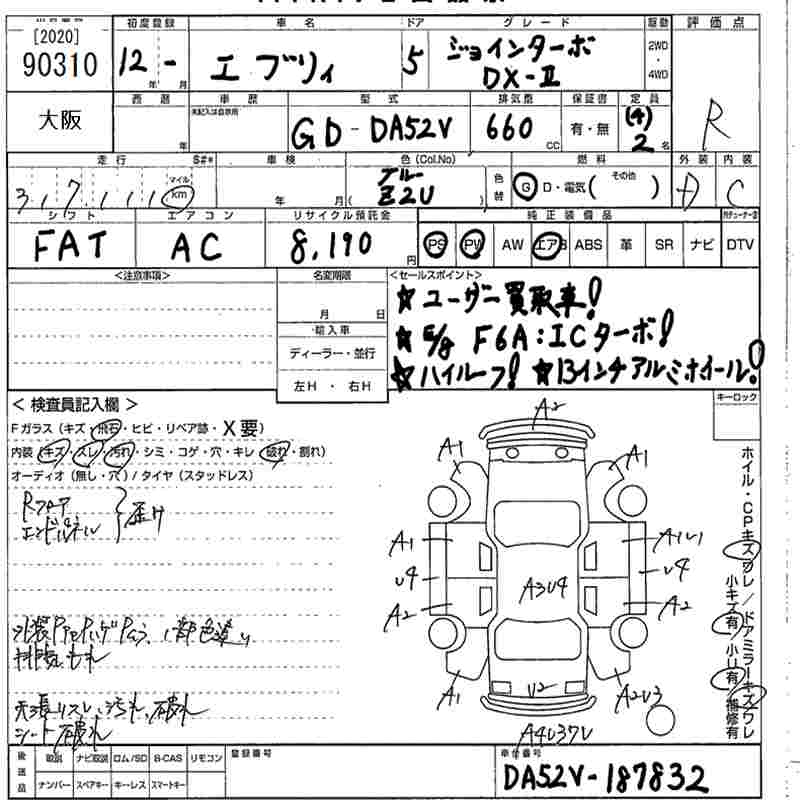 [2020]
90310
大阪
初度登録 車名 ドア グレード 駆動 評価点
12年 - 月 エブリィ 5 ジョインターボ DX-Ⅱ 2WD・4WD
西暦 車歴 型式 排気量 保証書 定員
未記入は自家用 GD-DA52V 660cc 有・無 (4) 2名 R
走行 S#* 車検 色(Col.No) 燃料 外装 内装
3,7,1,1,1 マイル km 年 月 ( ブルー Z2U ) 色替 G D・電気( その他 ) D C
シフト エアコン リサイクル預託金 純正装備品
FAT AC 8,190円 PS PW AW エアB ABS 革 SR ナビ DTV
<注意事項> 名変期限 <セールスポイント>
月 日
輸入車
ディーラー・並行
左H ・ 右H
☆ユーザー買取車!
☆E/g F6A:ICターボ!
☆ハイルーフ! ☆13インチアルミホイール!
キーロック
< 検査員記入欄 >
Fガラス(キズ・飛石・ヒビ・リペア跡・X要)
内装(キズ・スレ・汚れ・シミ・コゲ・穴・キレ・破れ・割れ)
オーディオ(無し・穴)/タイヤ(スタッドレス)
Rフロア
エンドパネル
歪み
排気もれ
天張りスレ、汚れ、破れ
シート破れ
A2
A1 A1
A1 A1U1
U4 U4
A3U4
A2 A2
A1 U2 A2U3
ホイル・CPキズワレ/ドアミラーキズワレ
小キズ有 小U有 補修有
後送品 取説 ナビ取説 ロム/SD B-CAS リモコン 登録番号 車台番号
ナンバー スペアキー キーレス スマートキー DA52V-187832